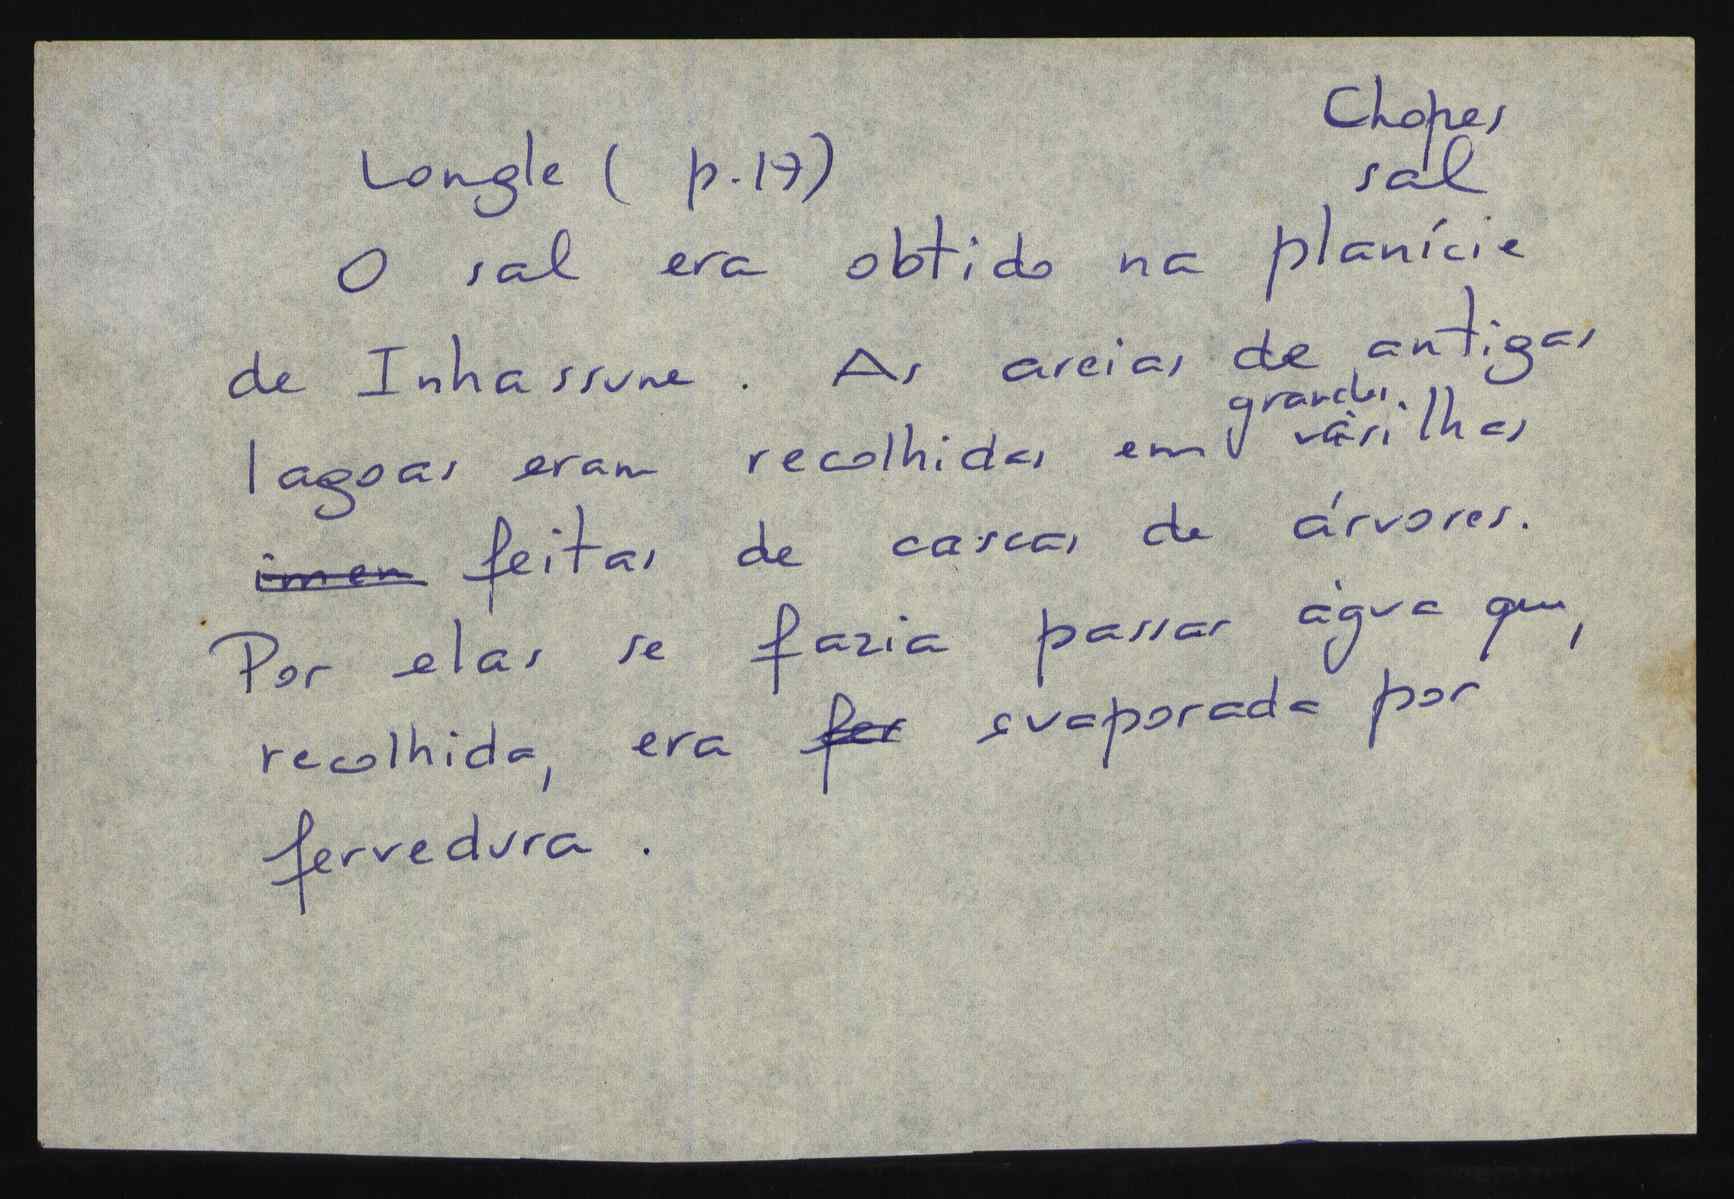 Chopes
Longle ( p.17)
sal
O sal era obtido na planície
de Inhassune. As areias de antigas
grandes
lagoas eram recolhidas em vasilhas
imen feitas de cascas de árvores.
Por elas se fazia passar água que,
recolhida, era fer evaporada por
fervedura.